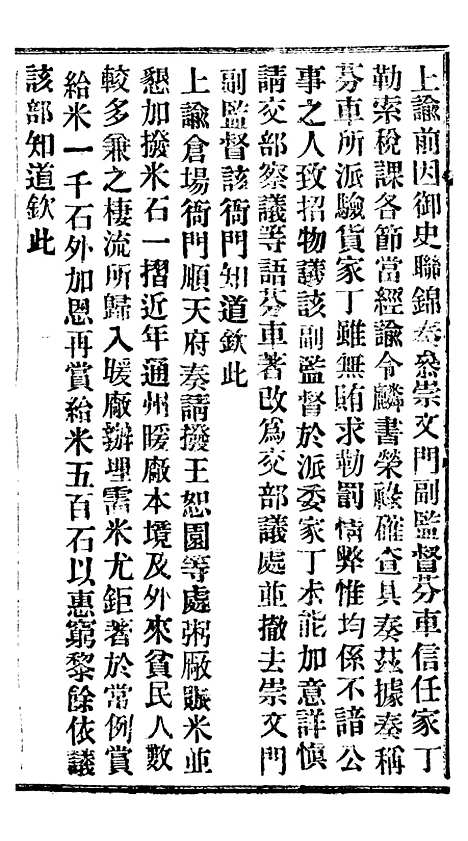 上諭前因御史聯錦奏參崇文門副監督芬車信任家丁
勒索稅課各節當經諭令麟書榮祿確查具奏茲據奏稱
芬車所派驗貨家丁雖無賄求勒罰情弊惟均係不諳公
事之人致招物議該副監督於派委家丁未能加意詳愼
請交部察議等語芬車著改爲交部議處並撤去崇文門
副監督該衙門知道欽此
上諭倉場衙門順天府奏請撥王恕園等處粥廠賑米並
懇加撥米石一摺近年通州暖廠本境及外來貧民人數
較多兼之棲流所歸入暖廠辦理需米尤鉅著於常例賞
給米一千石外加恩再賞給米五百石以惠窮黎餘依議
該部知道欽此